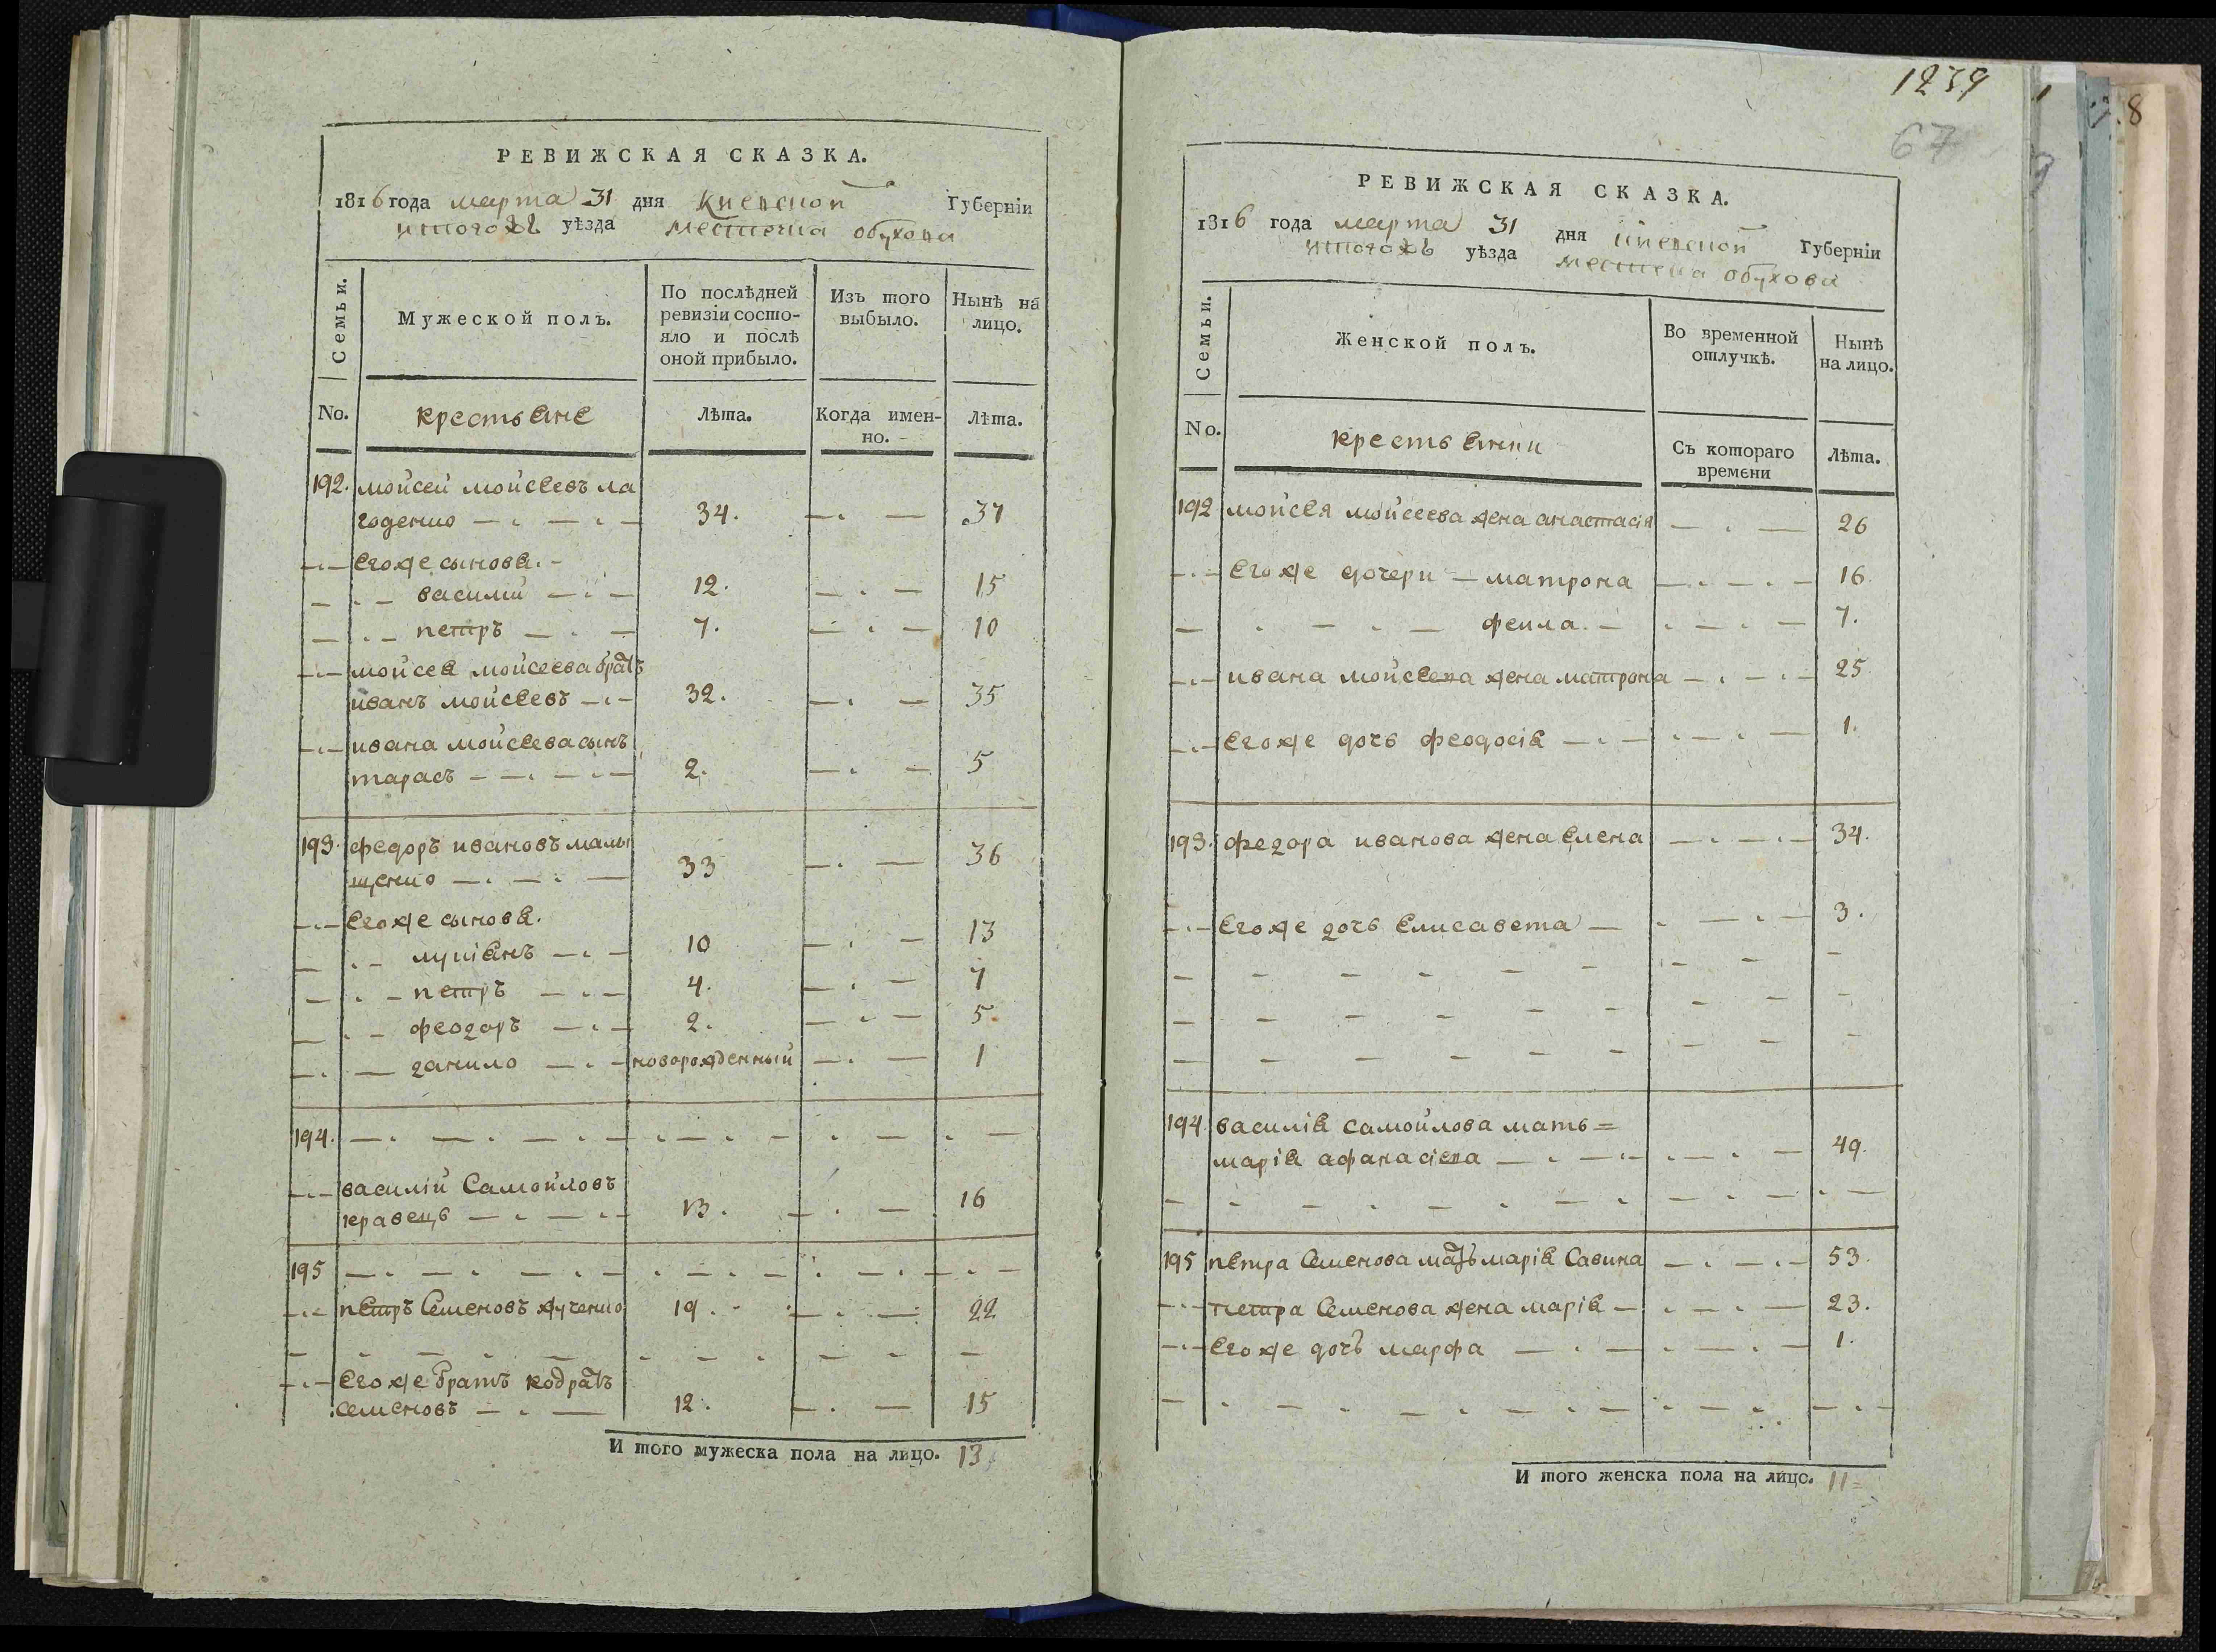 РЕВИЖСКАЯ СКАЗКА.
1816 года марта 31 дня киевской Губерніи
уѣзда местечка обухова
Семьи.
Мужеской полъ.
По послѣдней ревизіи состояло и послѣ оной прибыло.
Изъ того выбыло.
Нынѣ на лицо.
No.
крестьяне
Лѣта.
Когда именно.
Лѣта.
192. мойсей мойсеевъ ла
годенко 34. 37
его же сыновя.
василий 12. 15
петръ 7. 10
мойсея мойсеева братъ
иванъ мойсеевъ 32. 35
ивана мойсеева сынъ
тарасъ 2. 5
193. федоръ ивановъ малы
щенко 33 36
его же сыновя.
лукіянъ 10 13
петръ 4. 7
феодоръ 2. 5
данило новорожденный 1
194.
василій Самойловъ
кравець 13. 16
195
петръ Семеновъ жученко 19. 22
его же братъ кодратъ
семеновъ 12. 15
И того мужеска пола на лицо. 13
1239
67
РЕВИЖСКАЯ СКАЗКА.
1816 года марта 31 дня киевской Губерніи
уѣзда местечка обухова
Семьи.
Женской полъ.
Во временной отлучкѣ.
Нынѣ на лицо.
No.
крестьянки
Съ котораго времени
Лѣта.
192 мойсея мойсеева жена анастасія 26
его же дочери матрона 16.
фекла. 7.
ивана мойсеева жена матрона 25
его же дочь феодосія 1.
193. федора иванова жена елена 34.
его же дочь елисавета 3.
194. василія самойлова мать =
марія афанасіева 49.
195 петра семенова мать марія савина 53.
петра семенова жена марія 23.
его же дочь марфа 1.
И того женска пола на лицо. 11=
8